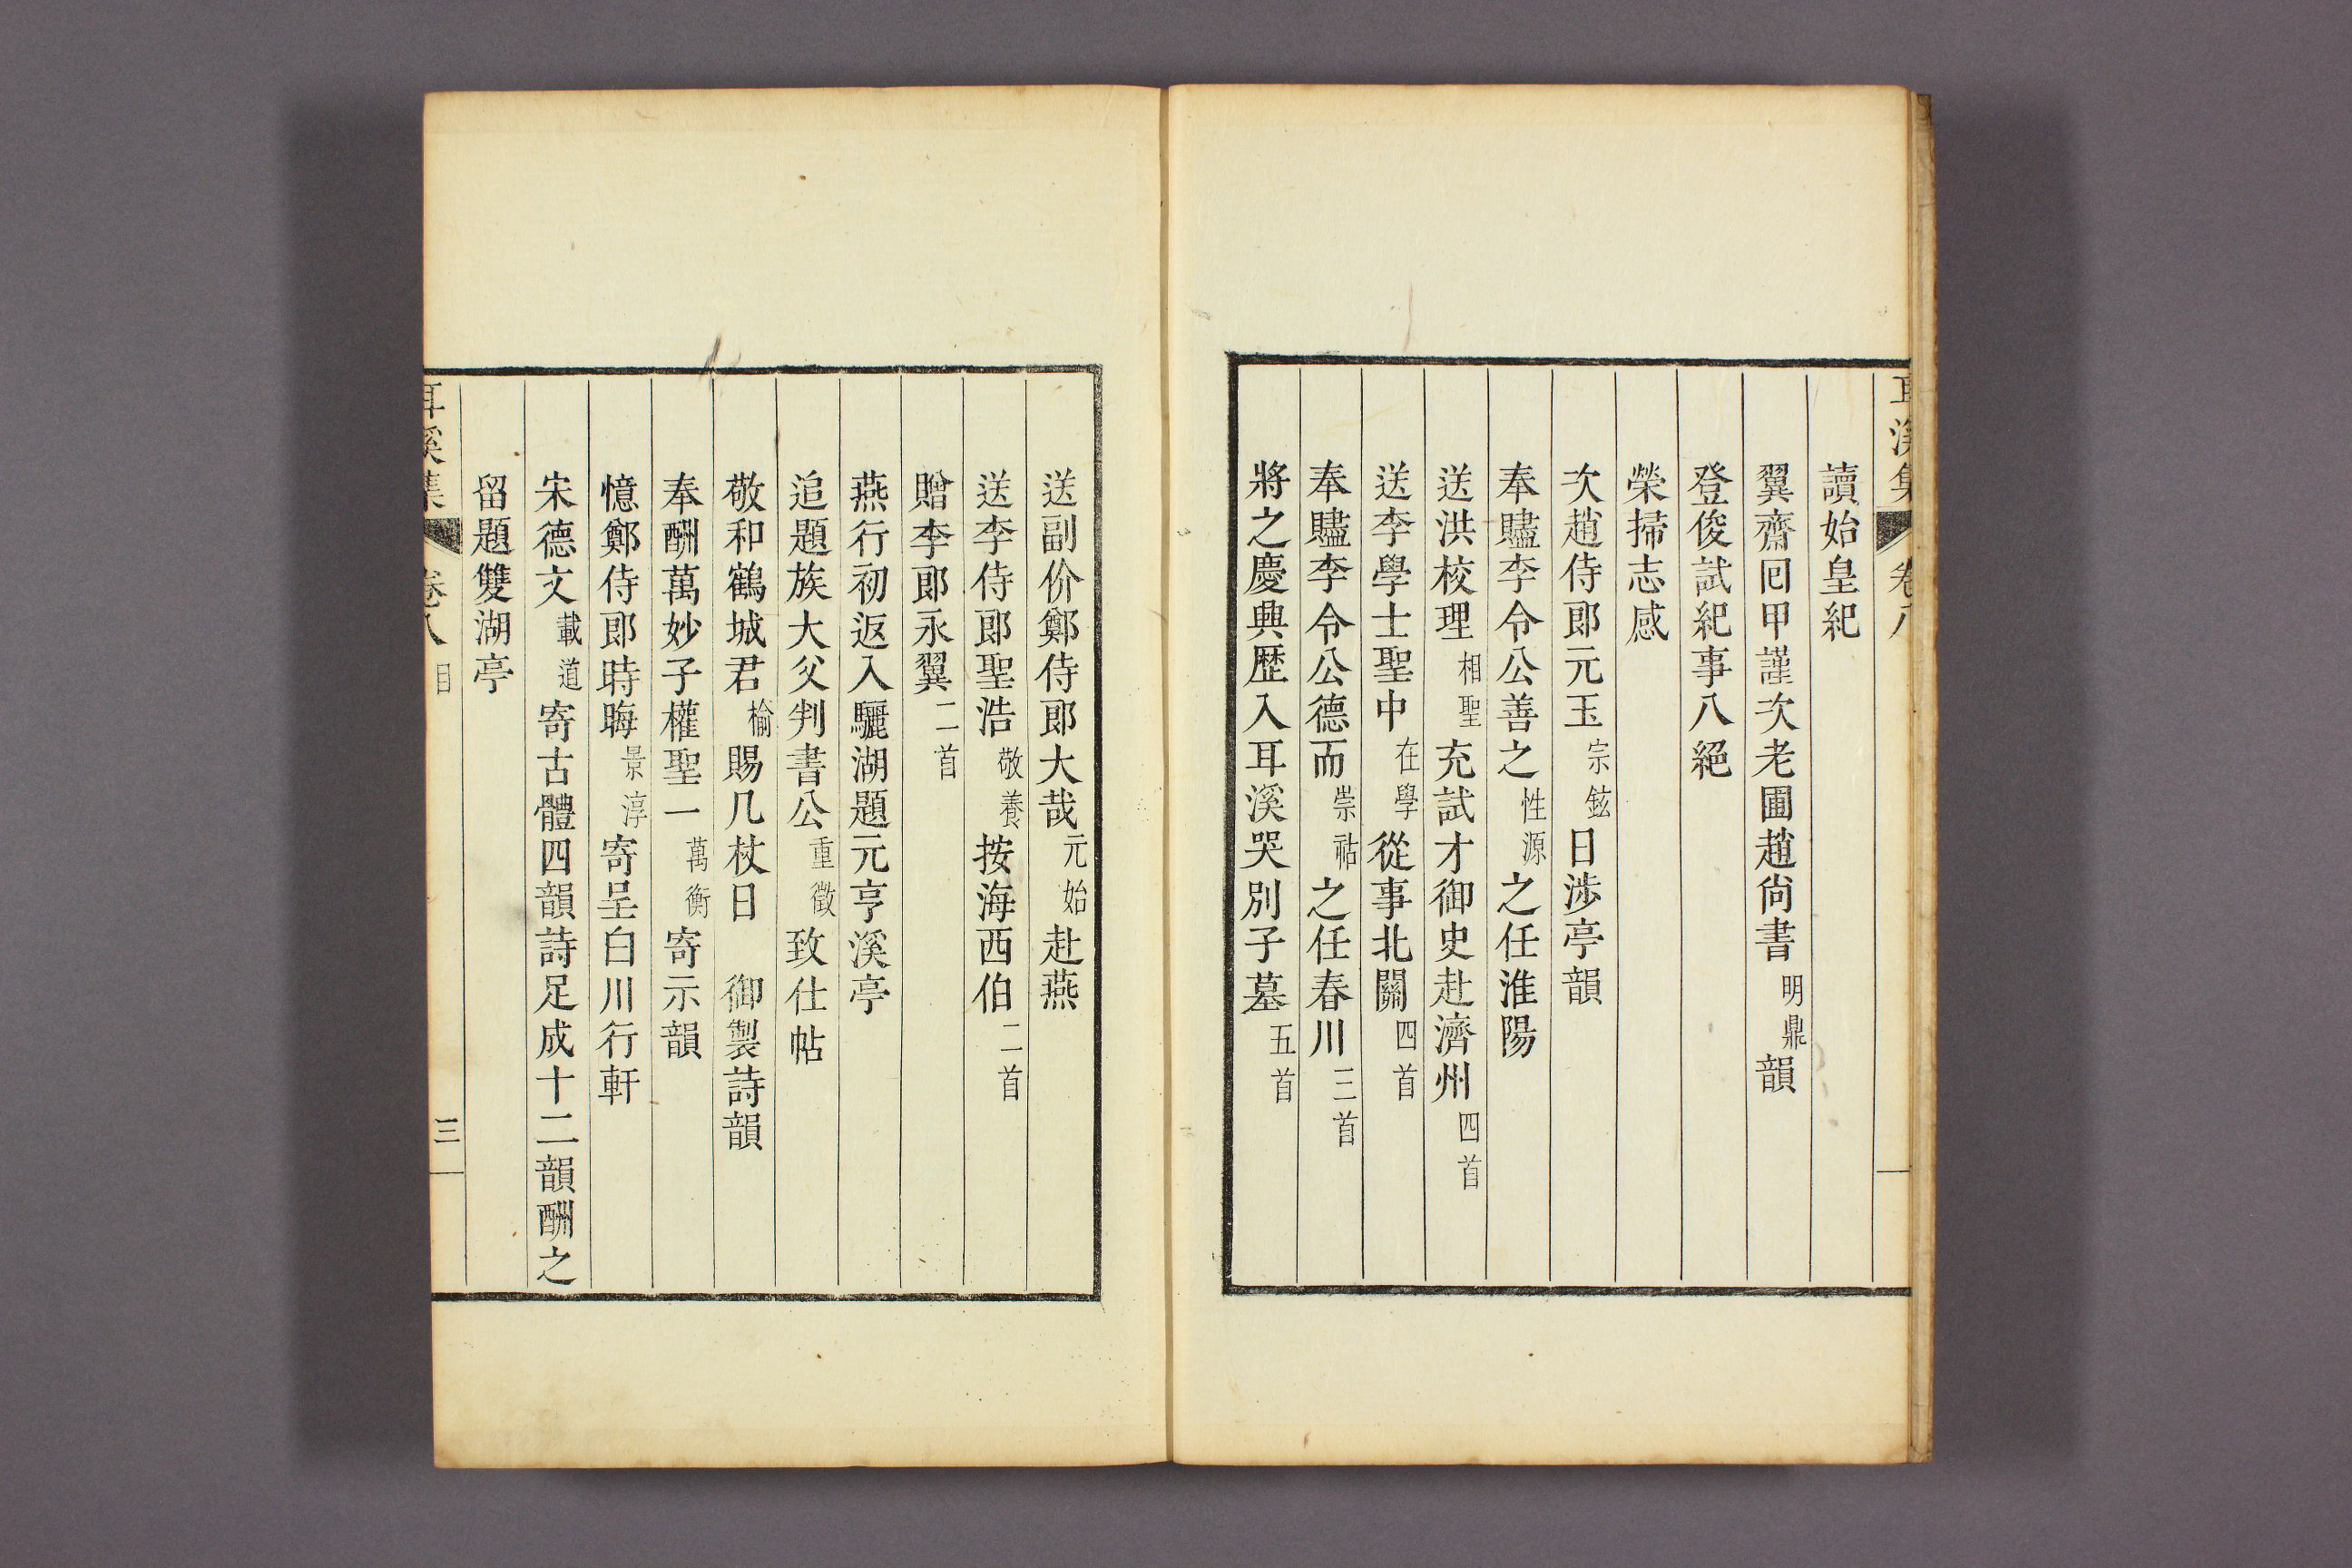 耳溪集 卷八
讀始皇紀
翼齋回甲謹次老圃趙尙書明鼎韻
登俊試紀事八絕
榮掃志感
次趙侍郎元玉宗鉉日涉亭韻
奉贐李令公善之性源之任淮陽
送洪校理相聖充試才御史赴濟州四首
送李學士聖中在學從事北關四首
奉贐李令公德而崇祜之任春川三首
將之慶興歷入耳溪哭別子墓五首
送副价鄭侍郎大哉元始赴燕
送李侍郎聖浩敬養按海西伯二首
贈李郎永翼二首
燕行初返入驪湖題元亨溪亭
追題族大父判書公重徵致仕帖
敬和鶴城君楡賜几杖日 御製詩韻
奉酬萬妙子權聖一萬衡寄示韻
憶鄭侍郎時晦景淳寄呈白川行軒
宋德文載道寄古體四韻詩足成十二韻酬之
留題雙湖亭
耳溪集 卷八 目 三